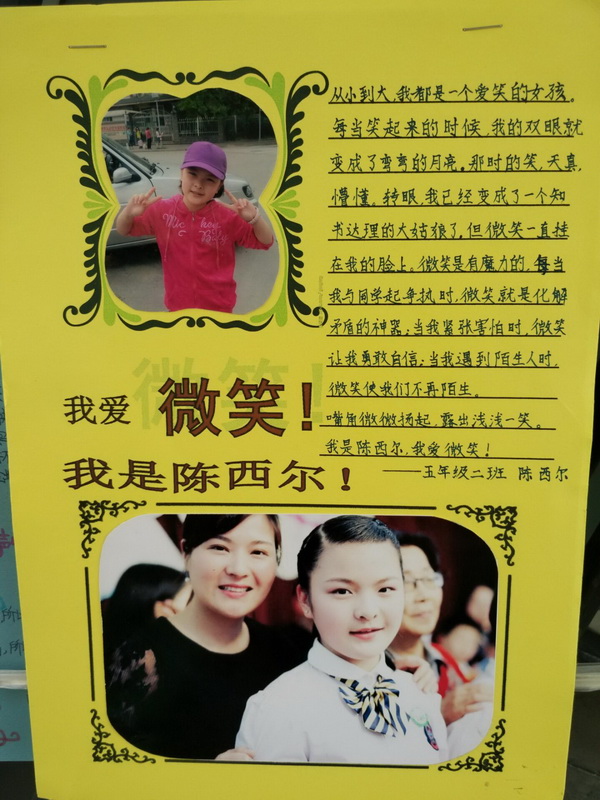 从小到大,我都是一个爱笑的女孩。
每当笑起来的时候,我的双眼就
变成了弯弯的月亮。那时的笑,天真,
懵懂。转眼,我已经变成了一个知
书达理的大姑娘了。但微笑一直挂
在我的脸上。微笑是有魔力的,每当
我与同学起争执时,微笑就是化解
矛盾的神器;当我紧张害怕时,微笑
让我勇敢自信;当我遇到陌生人时,
微笑使我们不再陌生。
嘴角微微扬起,露出浅浅一笑。
我是陈西尔,我爱微笑!
——五年级二班 陈西尔
我爱 微笑!
我是陈西尔!